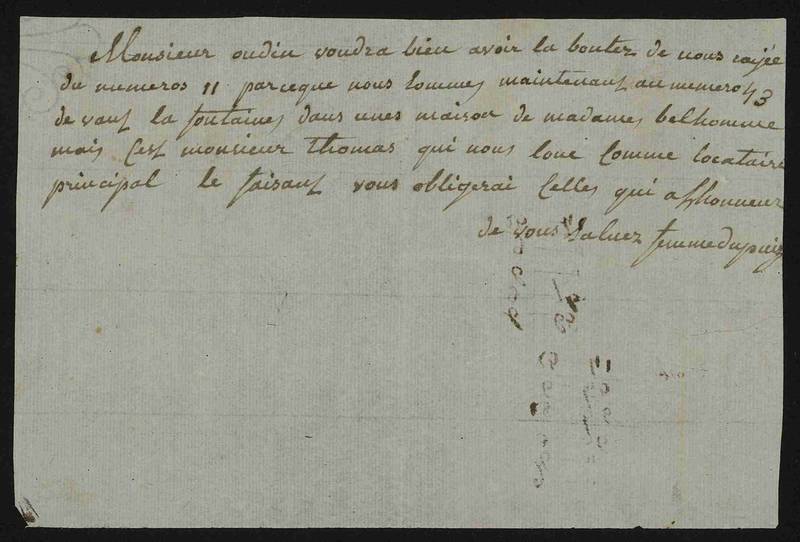 Monsieur oudin voudra bien avoir la boutez de nous rayée
du numeros 11 parceque nous sommes maintenant au numero 43
de vant la fontaines dans unes maison de madames belhomme
mais cest monsieur thomas qui nous loue comme locataire
principal le faisant vous obligerai celles qui a lhonneur
de vous saluez femme dupuis